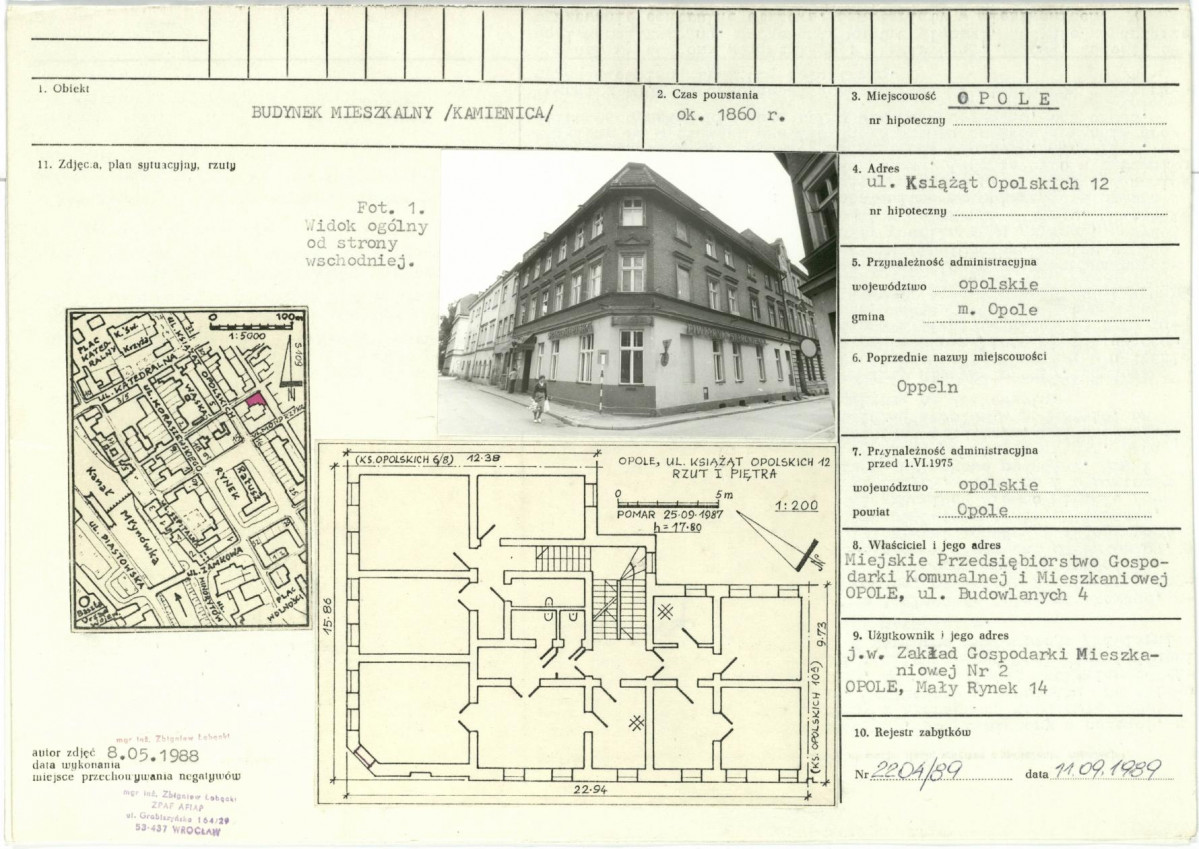 1. Obiekt
BUDYNEK MIESZKALNY /KAMIENICA/
2. Czas powstania
ok. 1860 r.
3. Miejscowość OPOLE
nr hipoteczny
11. Zdjęcia, plan sytuacyjny, rzuty
Fot. 1.
Widok ogólny
od strony
wschodniej.
4. Adres
ul. Książąt Opolskich 12
nr hipoteczny
5. Przynależność administracyjna
województwo opolskie
gmina m. Opole
6. Poprzednie nazwy miejscowości
Oppeln
7. Przynależność administracyjna
przed 1.VI.1975
województwo opolskie
powiat Opole
8. Właściciel i jego adres
Miejskie Przedsiębiorstwo Gospo-
darki Komunalnej i Mieszkaniowej
OPOLE, ul. Budowlanych 4
9. Użytkownik i jego adres
j.w. Zakład Gospodarki Mieszka-
niowej Nr 2
OPOLE, Mały Rynek 14
10. Rejestr zabytków
Nr 2204/89 data 11.09.1989
0 100m
1:5000
N
PLAC
KATED-
RALNY
K. Św.
Krzyża
UL. KATEDRALNA
UL. KS. OPOLSKICH
WĄSKA
UL. KORASZEWSKIEGO
RYNEK
Ratusz
Kanał
Młynówka
UL. PIASTOWSKA
UL. SZPITALNA
UL. ZAMKOWA
UL. MINORYTÓW
PLAC
WOLNOŚCI
(KS. OPOLSKICH 6/8) 12·38
OPOLE, UL. KSIĄŻĄT OPOLSKICH 12
RZUT I PIĘTRA
0 5m
1:200
POMAR 25·09·1987
h=17·80
N
15·86
9·73
(KS. OPOLSKICH 10a)
22·94
mgr inż. Zbigniew Łabęcki
autor zdjęć 8.05.1988
data wykonania
miejsce przechowywania negatywów
mgr inż. Zbigniew Łabęcki
ZPAF AFIAP
ul. Grabiszyńska 164/29
53-437 WROCŁAW